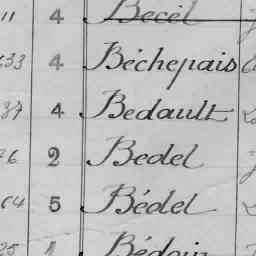 11 4 Becel
533 4 Béchepais
37 4 Bedault
76 2 Bedel
64 5 Bédel
25 1 Bédoin